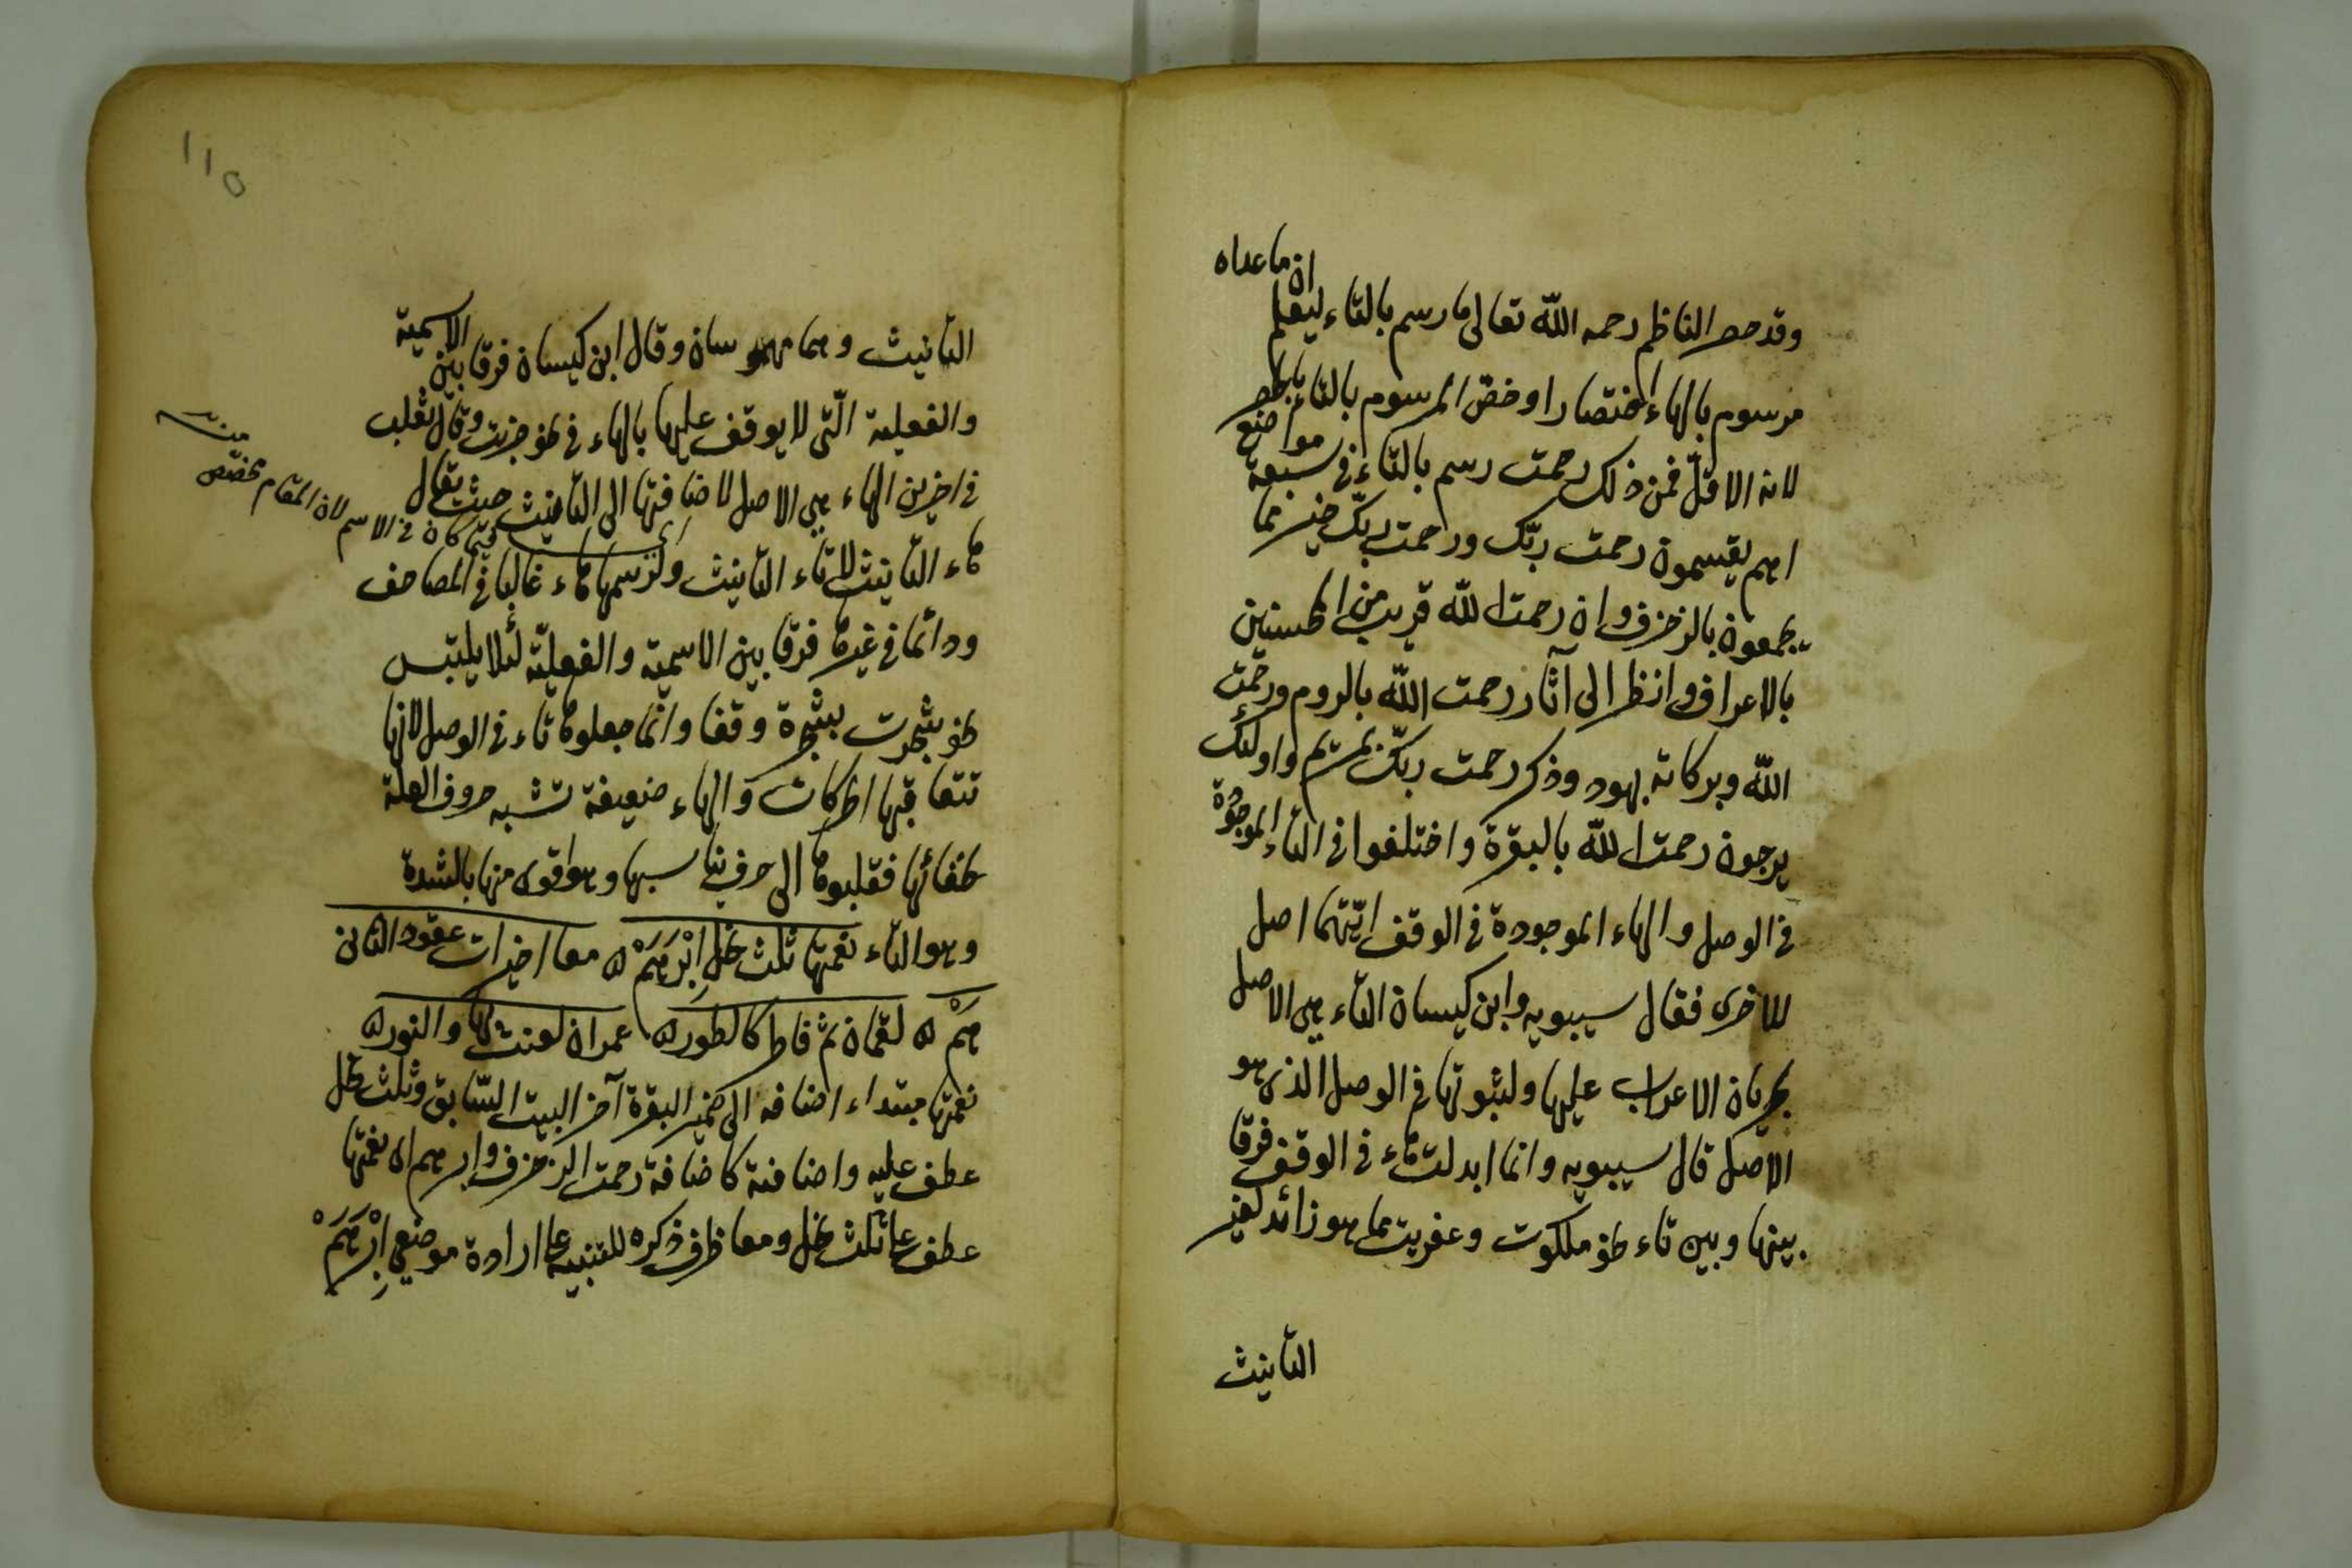 وقد حصر الناظم رحمه الله تعالى ما رسم بالتاء ليعلم ان ما عداه
مرسوم بالهاء اختصارا وخصّ المرسوم بالتاء بالحصر
لانه الاقلّ فمن ذلك رحمت رسم بالتاء في سبعة مواضع
اهم يقسمون رحمت ربّك ورحمت ربّك خير مما
يجمعون بالزخرف وان رحمت الله قريب من المحسنين
بالاعراف وانظر الى آثار رحمت الله بالروم ورحمت
الله وبركاته بهود وذكر رحمت ربّك بمريم واولئك
يرجون رحمت الله بالبقرة واختلفوا في التاء الموجودة
في الوصل والهاء الموجودة في الوقف ايّتهما اصل
للاخرى فقال سيبويه وابن كيسان التاء هي الاصل
لجريان الاعراب عليها ولثبوتها في الوصل الذى هو
الاصل قال سيبويه وانما ابدلت هاء في الوقف فرقا
بينها وبين تاء نحو ملكوت وعفريت مما هو زائد لغير
التأنيث
١١٥
التأنيث وهما مهموسان وقال ابن كيسان فرقا بين الاسمية
والفعلية الّتى لا يوقف عليها بالهاء في نحو خربت وقال ثعلب
في اخرين الهاء هي الاصل لاضافتها الى التأنيث حيث يقال
هاء التأنيث لا تاء التأنيث ولرسمها هاء غالبا في المصاحف
أي فيما كان في الاسم لان المقام مختصّ منه
ودائما في غيرها فرقا بين الاسمية والفعليّة لئلا يلتبس
نحو شجرت بشجرة وقفا وانما جعلوها تاء في الوصل لانها
تتعاقبها الحركات والهاء ضعيفة تشبه حروف العلة
لخفائها فقلبوها الى حرف يناسبها وهو اقوى منها بالشدة
وهو التاء نعمتها ثلث نحل اِبْرَهَمْ ۞ معا اخيرات عقود الثان
هَمّْ ۞ لقمان ثم فاطر كالطور ۞ عمران لعنت بها والنور ۞
نعمتها مبتداء اضافه الى ضمير البقرة آخر البيت السّابق وثلث نحل
عطف عليه واضافته كاضافة رحمت الزخرف وابرهم اى نعمتها
عطف على ثلث نحل ومعا ظرف ذكره للتنبيه على ارادة موضعى اِبْرَهَمْ